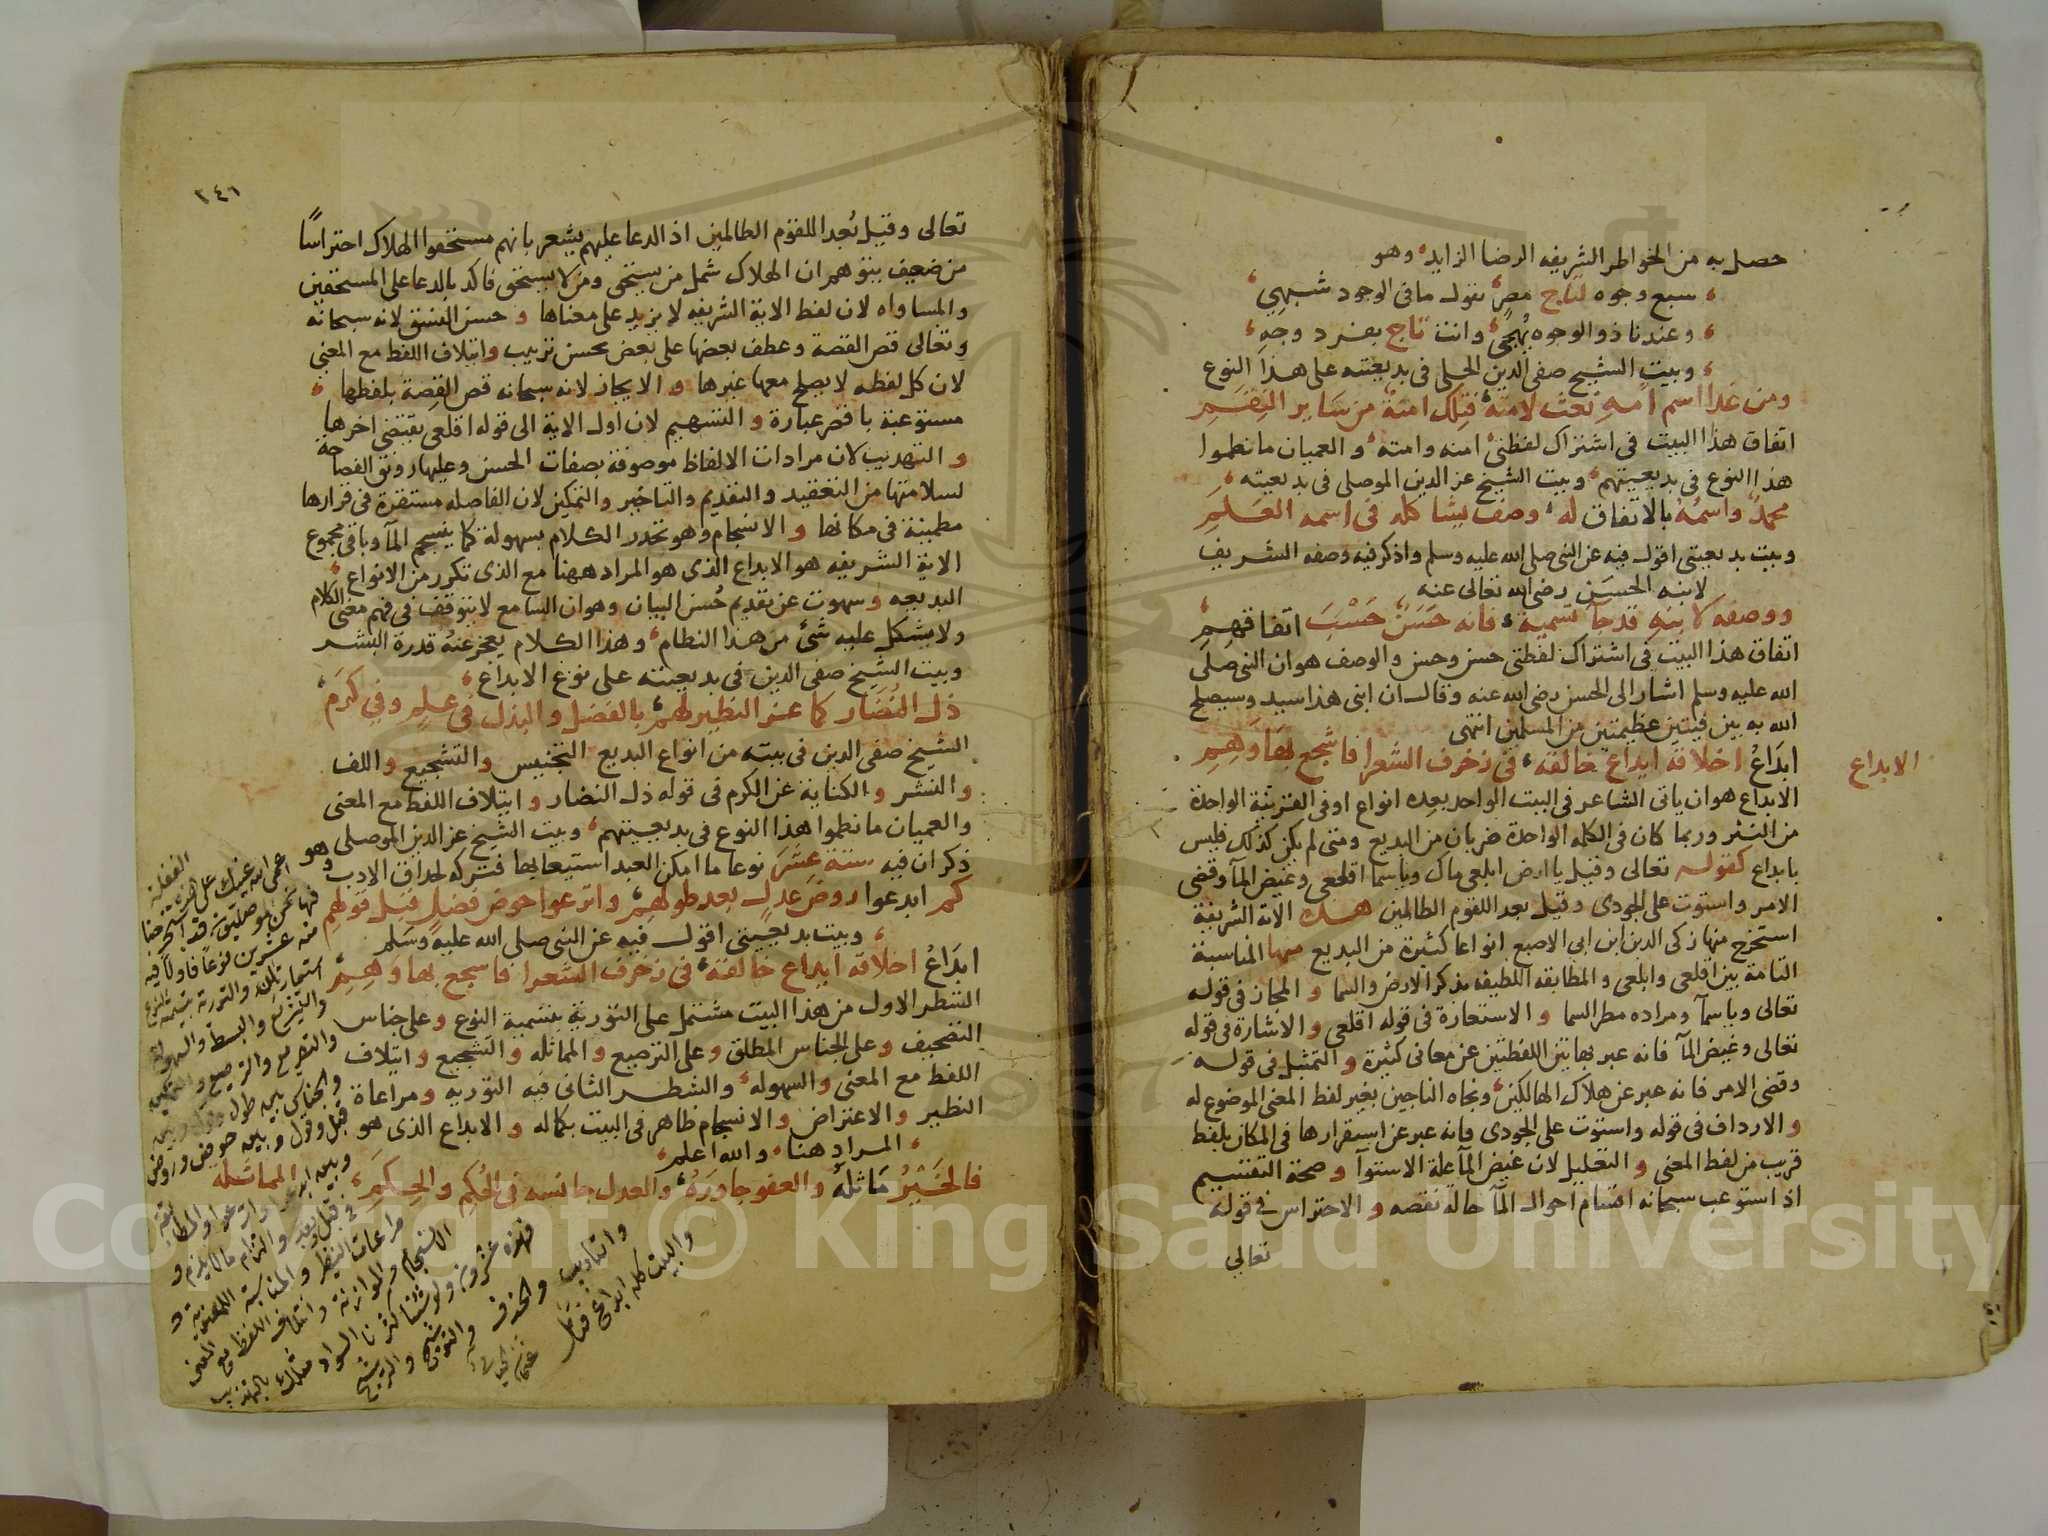 حصل به من الخواطر الشريفه الرضا الزايد وهو
سبع وجوه لتاج مصر تقول ما فى الوجود شبهي
وعندنا ذو الوجوه يهجى وانت تاج بفرد وجه
وبيت الشيخ صفى الدين الحلى فى بديعيته على هذا النوع
ومن غدا اسم امه نعت لامته فتلك امنة من ساير النقم
اتفاق هذا البيت فى اشتراك لفظتى امنه وامته والعميان ما نظموا
هذا النوع فى بديعيتهم وبيت الشيخ عز الدين الموصلى فى بديعيته
محمد واسمه بالاتفاق له وصف يشاكله فى اسمه العلم
وبيت بديعيتى اقول فيه عن النبى صلى الله عليه وسلم واذكر فيه وصفه الشريف
لابنه الحسن رضى الله تعالى عنه
ووصفه لابنه قد جآ تسمية فانه حسن حسب اتفاقهم
اتفاق هذا البيت فى اشتراك لفظتى حسن وحسن والوصف هو ان النبى صلى
الله عليه وسلم اشار الى الحسن رضى الله عنه وقال ان ابنى هذا سيد وسيصلح
الله به بين فيتين عظيمتين من المسلمين انتهى
الابداع
ابداع اخلاقه ايداع خالقه فى زخرف الشعرا فاسجع بها وهم
الابداع هو ان ياتى الشاعر فى البيت الواحد بعده انواع او فى القرينة الواحدة
من النثر وربما كان فى الكلمه الواحدة ضربان من البديع ومتى لم يكن كذلك فليس
بابداع كقوله تعالى وقيل يا ارض ابلعى ماك ويا سما اقلعى وغيض المآ وقضى
الامر واستوت على الجودى وقيل بعد للقوم الظالمين هذه الاية الشريفة
استخرج منها زكى الدين ابن ابى الاصبع انواعا كثيرة من البديع منها المناسبة
التامة بين اقلعى وابلعى والمطابقه اللطيفه بذكر الارض والسما و المجاز فى قوله
تعالى ويا سمآ ومراده مطر السما و الاستعارة فى قوله اقلعى و الاشارة فى قوله
تعالى وغيض المآ فانه عبر بهاتين اللفظتين عن معانى كثيرة و التمثيل فى قوله
وقضى الامر فانه عبر عن هلاك الهالكين ونجاه الناجين بغير لفظ المعنى الموضوع له
و الارداف فى قوله واستوت على الجودى فانه عبر عن استقرارها فى المكان بلفظ
قريب من لفظ المعنى و التعليل لان غيض المآ علة الاستوآ و صحة التقسيم
اذ استوعب سبحانه اقسام احوال المآ حالة نقصه و الاحتراس فى قوله
تعالى
٣٤٦
تعالى وقيل بعدا للقوم الظالمين اذ الدعا عليهم يشعر بانهم مستحقوا الهلاك احتراسًا
من ضعيف يتوهم ان الهلاك شمل من يستحق ومن لا يستحق فاكد بالدعا على المستحقين
والمساواه لان لفظ الاية الشريفه لا يزيد على معناها و حسن النسق لانه سبحانه
وتعالى قص القصة وعطف بعضها على بعض بحسن ترتيب وايتلاف اللفظ مع المعنى
لان كل لفظه لا يصلح معها غيرها و الايجاز لانه سبحانه قص القصة بلفظها
مستوعبة باقصر عبارة و التسهيم لان اول الاية الى قوله اقلعى يقتضى اخرها
و التهذيب لان مرادات الالفاظ موصوفة بصفات الحسن وعليها رونق الفصاحة
لسلامتها من التعقيد والتقديم والتاخير والتمكين لان الفاصله مستقرة فى قرارها
مطمينة فى مكانها و الانسجام وهو تحدر الكلام بسهولة كما ينسجم المآ وباقى مجموع
الاية الشريفه هو الابداع الذى هو المراد ههنا مع الذى تكرر من الانواع
البديعه وسهوت عن تقديم حسن البيان وهو ان السامع لا يتوقف فى فهم معنى الكلام
ولا يشكل عليه شئ من هذا النظام وهذا الكلام يعجز عنه قدرة البشر
وبيت الشيخ صفى الدين فى بديعيته على نوع الابداع
ذل النضار كما عز النظير لهم بالفضل والبذل فى علم وفى كرم
الشيخ صفى الدين فى بيته من انواع البديع التجنيس والتسجيع واللف
والنشر والكناية عن الكرم فى قوله ذل النضار و ايتلاف اللفظ مع المعنى
والعميان ما نظموا هذا النوع فى بديعيتهم وبيت الشيخ عز الدين الموصلى
ذكر ان فيه ستة عشر نوعا ما امكن العبد استيعابها فتركه لحذاق الادب وهو
كم ابدعوا روض عدل بعد طولهم واترعوا حوض فضل قبل قولهم
وبيت بديعيتى اقول فيه عن النبى صلى الله عليه وسلم
ابداع اخلاقه ايداع خالقه فى زخرف الشعرا فاسجع بها وهم
الشطر الاول من هذا البيت مشتمل على التورية بتسمية النوع و على جناس
التصحيف و على الجناس المطلق و على الترصيع و المماثله و التسجيع و ايتلاف
اللفظ مع المعنى والسهوله والشطر الثانى فيه التوريه و مراعاة
النظير و الاعتراض و الانسجام ظاهر فى البيت بكماله و الابداع الذى هو
المراد هنا والله اعلم
المماثله
فالخير ماثله والعفو جاوره والعدل جانسه فى الحكم والحكم
منه عشرين نوعا فاولا فيه
استعارتان والتورية بتسمية النوع
والبسط والسهولة
والتصريع والترصيع والتمكين
والجناس بين طول وقول وبين
قبل وقول و بين حوض وروض
والتزام ما لا يلزم و
مراعات النظير و المناسبة اللفظية و
الانسجام والموازنة وائتلاف اللفظ مع المعنى
فهذه عشرون ولو شئنا كثرنا السواد بالتهذيب
والتاديب والحذف والتوشيح
والبيت كله ابداع فتامل
Copyright © King Saud University
1957